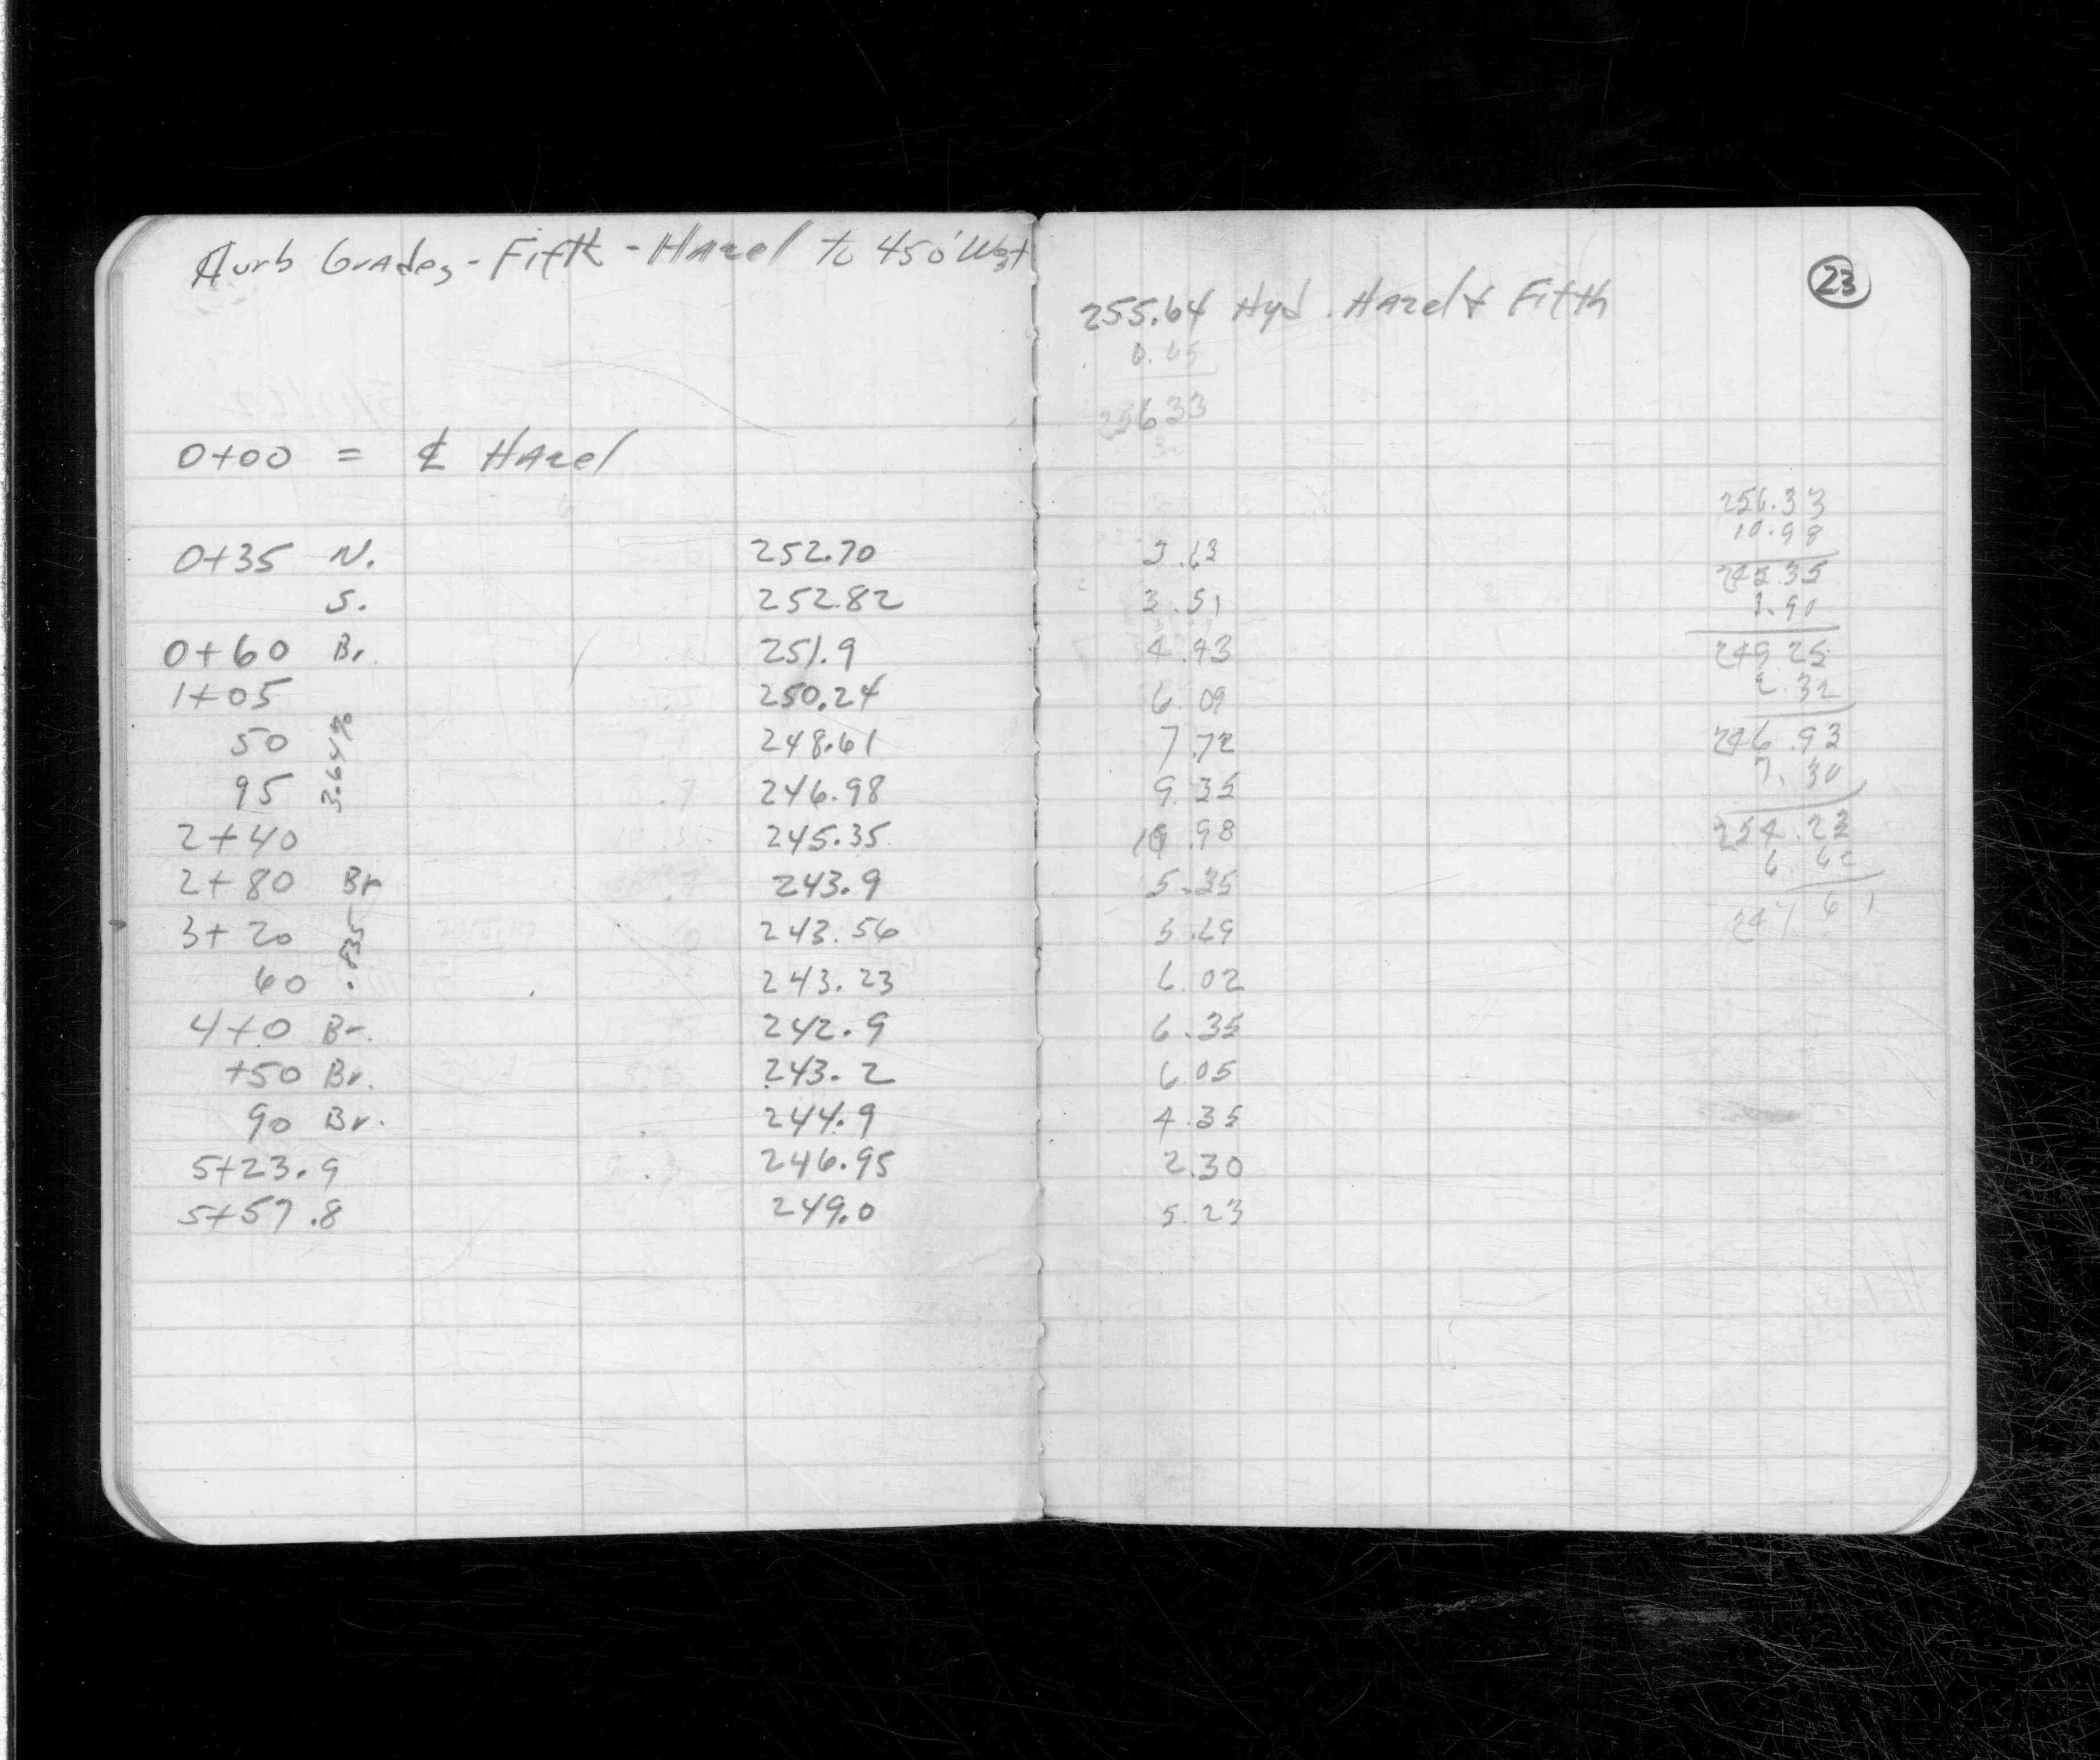 Curb Grades - Fifth - Hazel to 450' West
0+00 = ℄ Hazel
0+35 N. 252.70
S. 252.82
0+60 Br. 251.9
1+05 250.24
50 248.61
95 246.98
3.64%
2+40 245.35
2+80 Br 243.9
3+20 243.56
.835
60 243.23
4+0 Br. 242.9
+50 Br. 243.2
90 Br. 244.9
5+23.9 246.95
5+57.8 249.0
23
255.64 Hyd. Hazel & Fifth
256 33
3.63
3.51
4.43
6.09
7.72
9.35
10.98
5.35
5.69
6.02
6.35
6.05
4.35
2.30
5.23
256.33
10.98
245.35
3.90
249.25
2.32
246.93
7.30
254.23
6.62
247.61